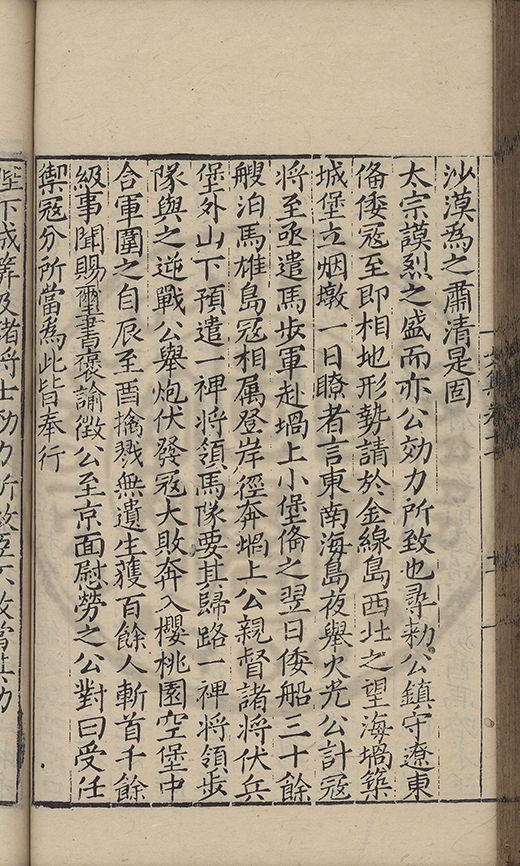 沙漠為之肅清是固
太宗謨烈之盛而亦公効力所致也尋勑公鎮守遼東
俻倭寇至即相地形勢請於金線島西北之望海堝築
城堡立烟墩一日瞭者言東南海島夜舉火光公計寇
將至亟遣馬步軍赴堝上小堡俻之翌日倭船三十餘
艘泊馬雄島寇相属登岸徑奔堝上公親督諸將伏兵
堡外山下預遣一裨將領馬隊要其歸路一裨將領步
隊與之逆戰公舉炮伏發寇大敗奔入櫻桃園空堡中
合軍圍之自辰至酉擒戮無遺生獲百餘人斬首千餘
級事聞賜璽書褒諭徵公至京面慰勞之公對曰受任
禦寇分所當為此皆奉行
陛下成筭及諸將士効力所致